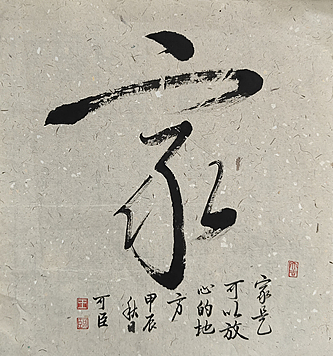 家
家是
可以放
心的地
方
甲辰
秋日
可臣